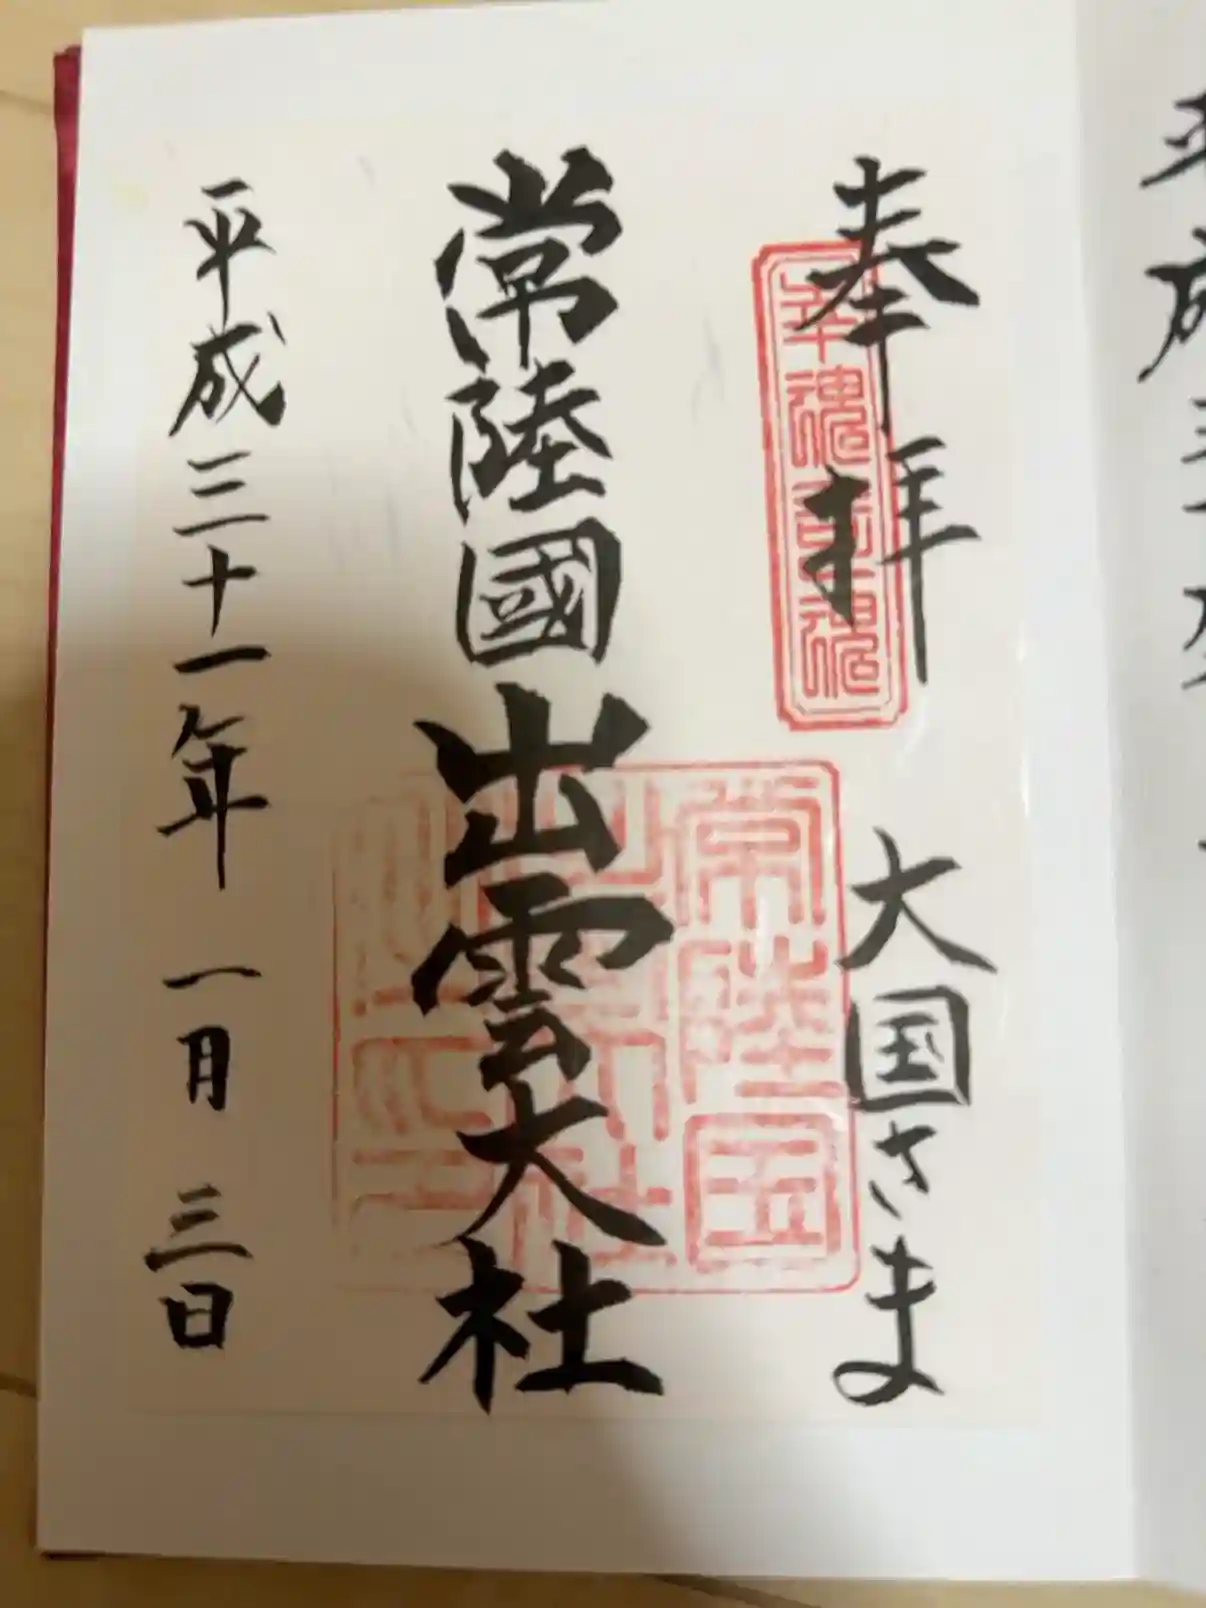 奉拝 大国さま
幸魂奇魂
常陸國出雲大社
常陸国
平成三十一年 一月 三日
平成三十